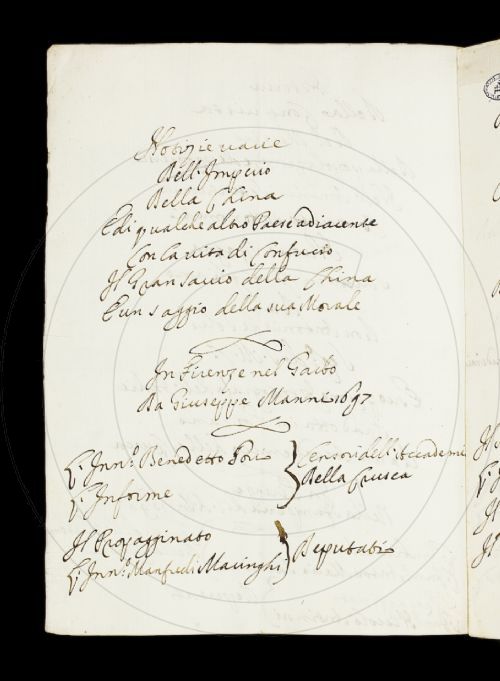 Notizie varie
Dell'Imperio
Della China
E di qualche altro Paese adiacente
Con la vita di Confucio
Il Gran Savio della China
E un saggio della sua Morale
In Firenze nel Garbo
Da Giuseppe Manni 1697
L'Inn.º Benedetto
Censori dell'Accademi
Della Crusca
L'Informe
Il Propagginato
Deputati
L'Inn.º Manfredi Macinghi